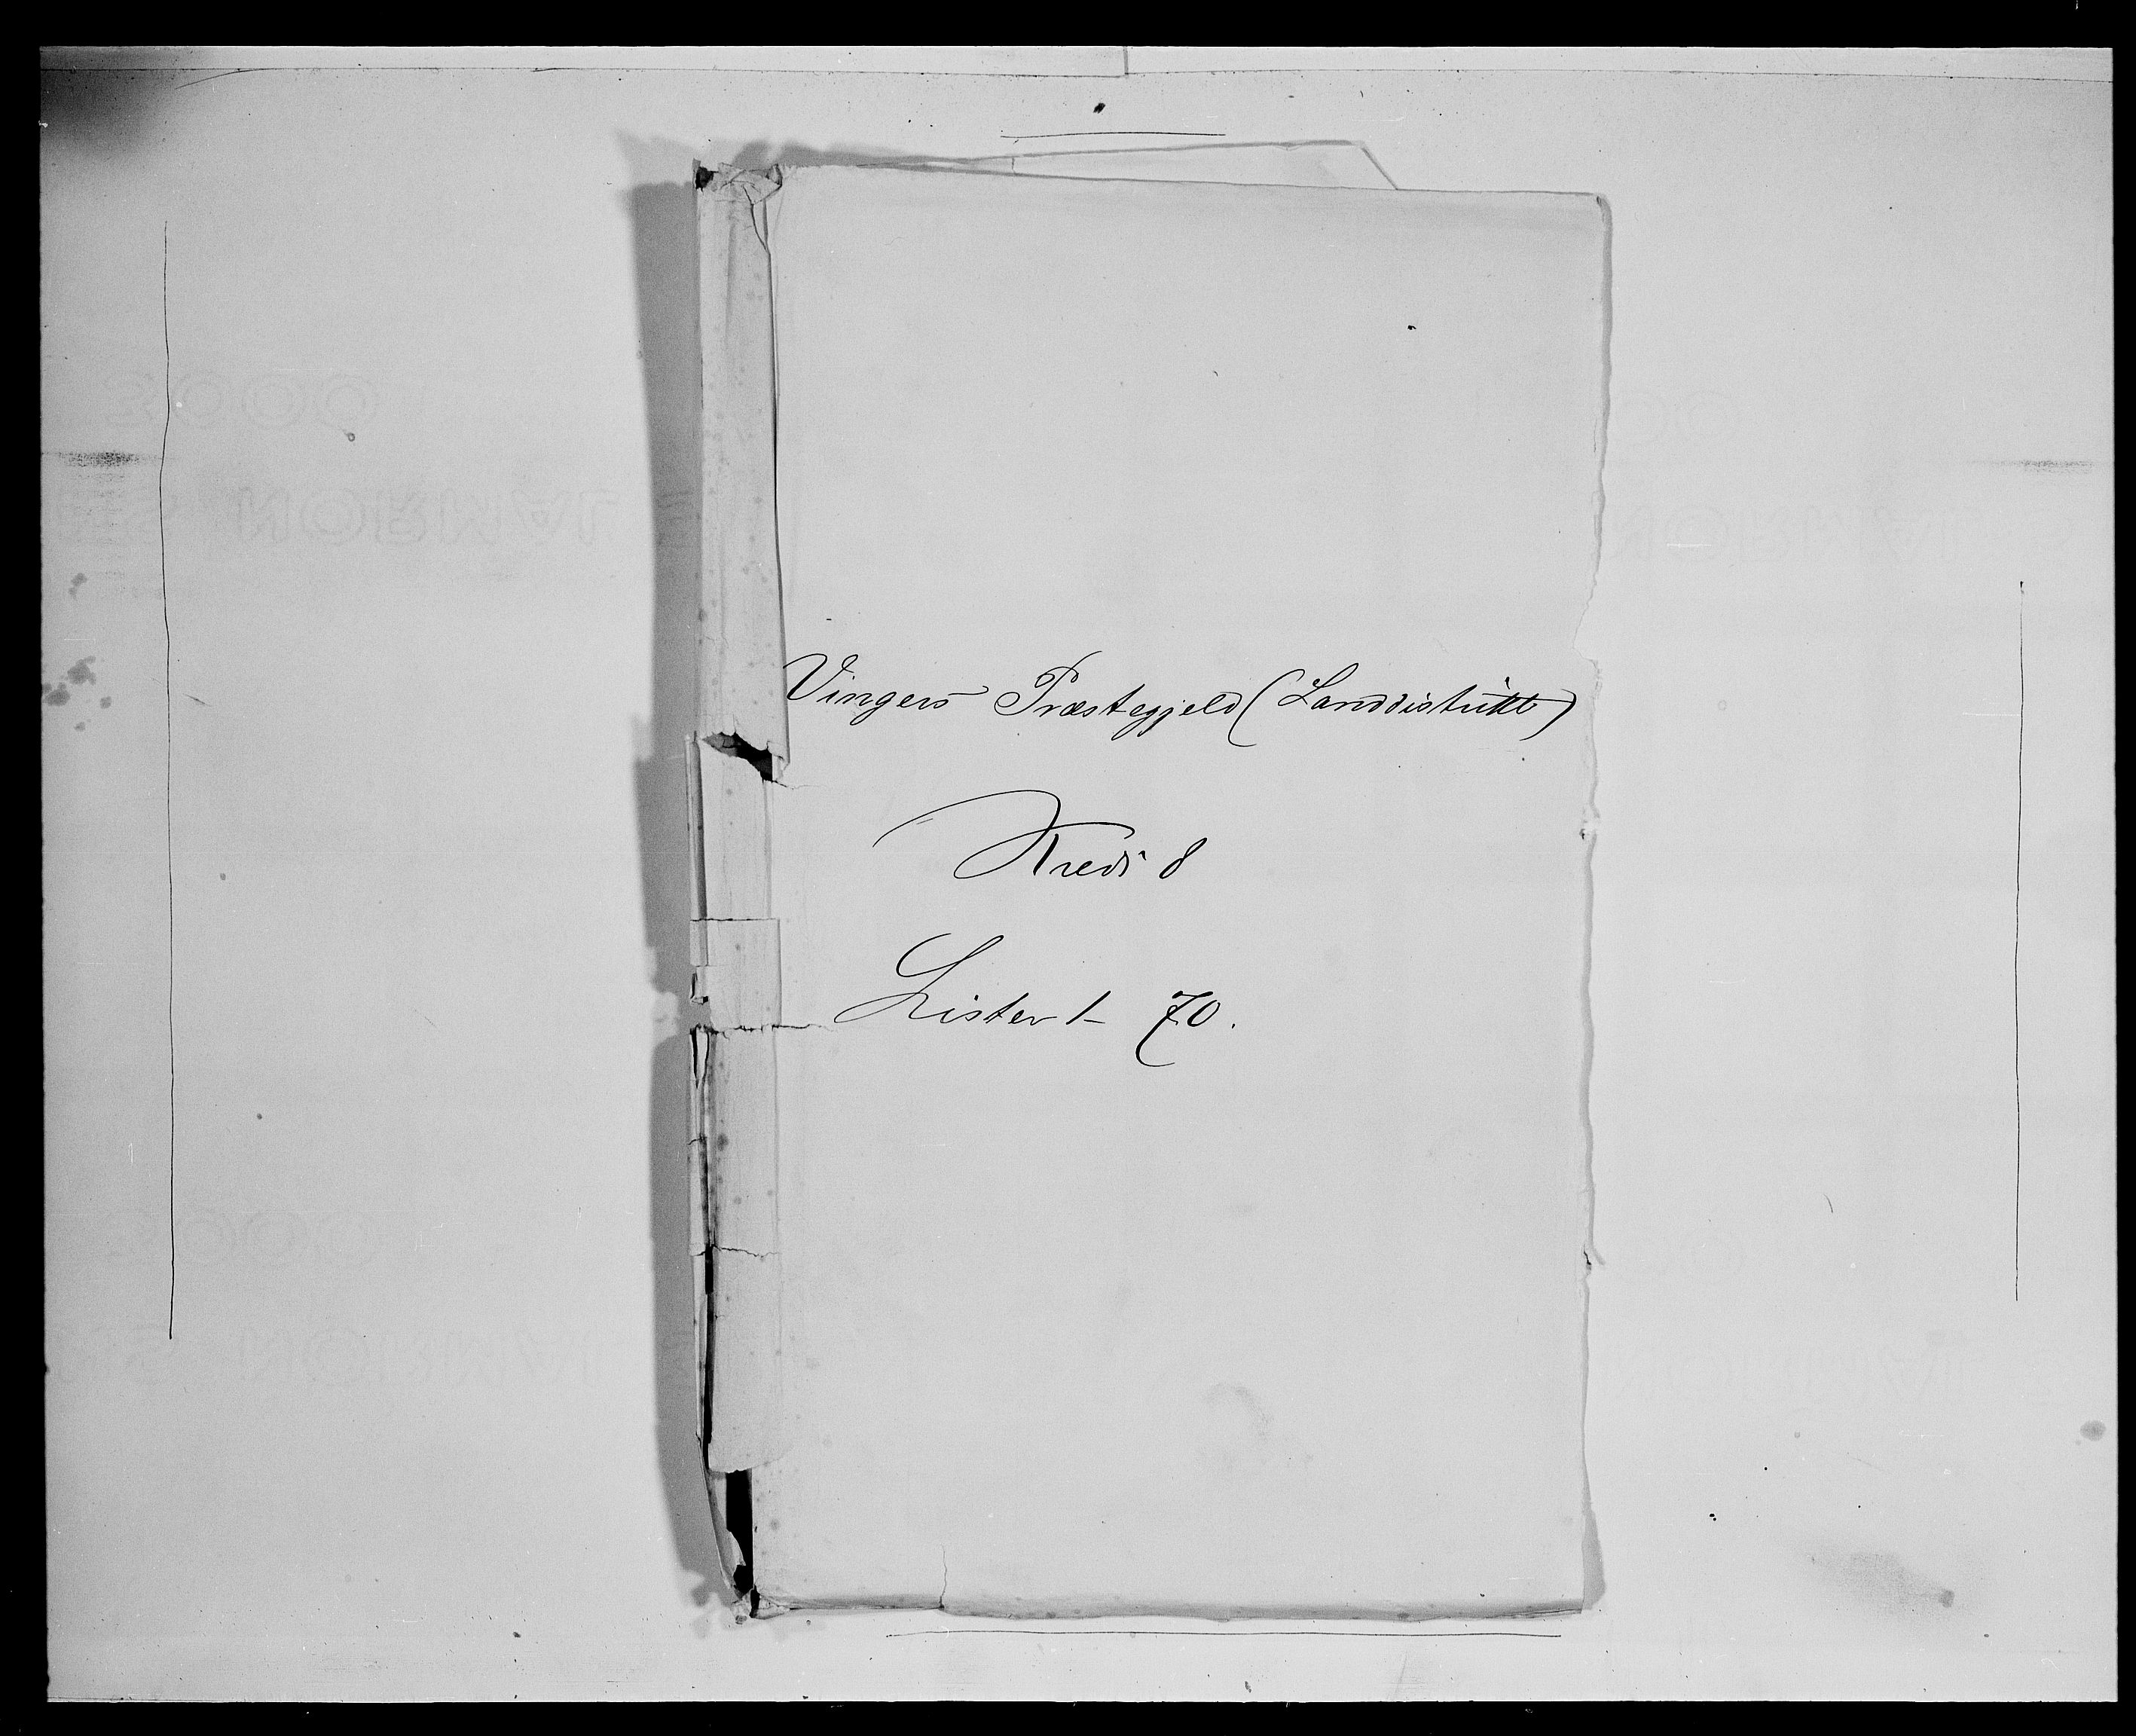 Vingers Præstegjeld (Landdistrikt)
Kreds 8
Lister 1 - 70.